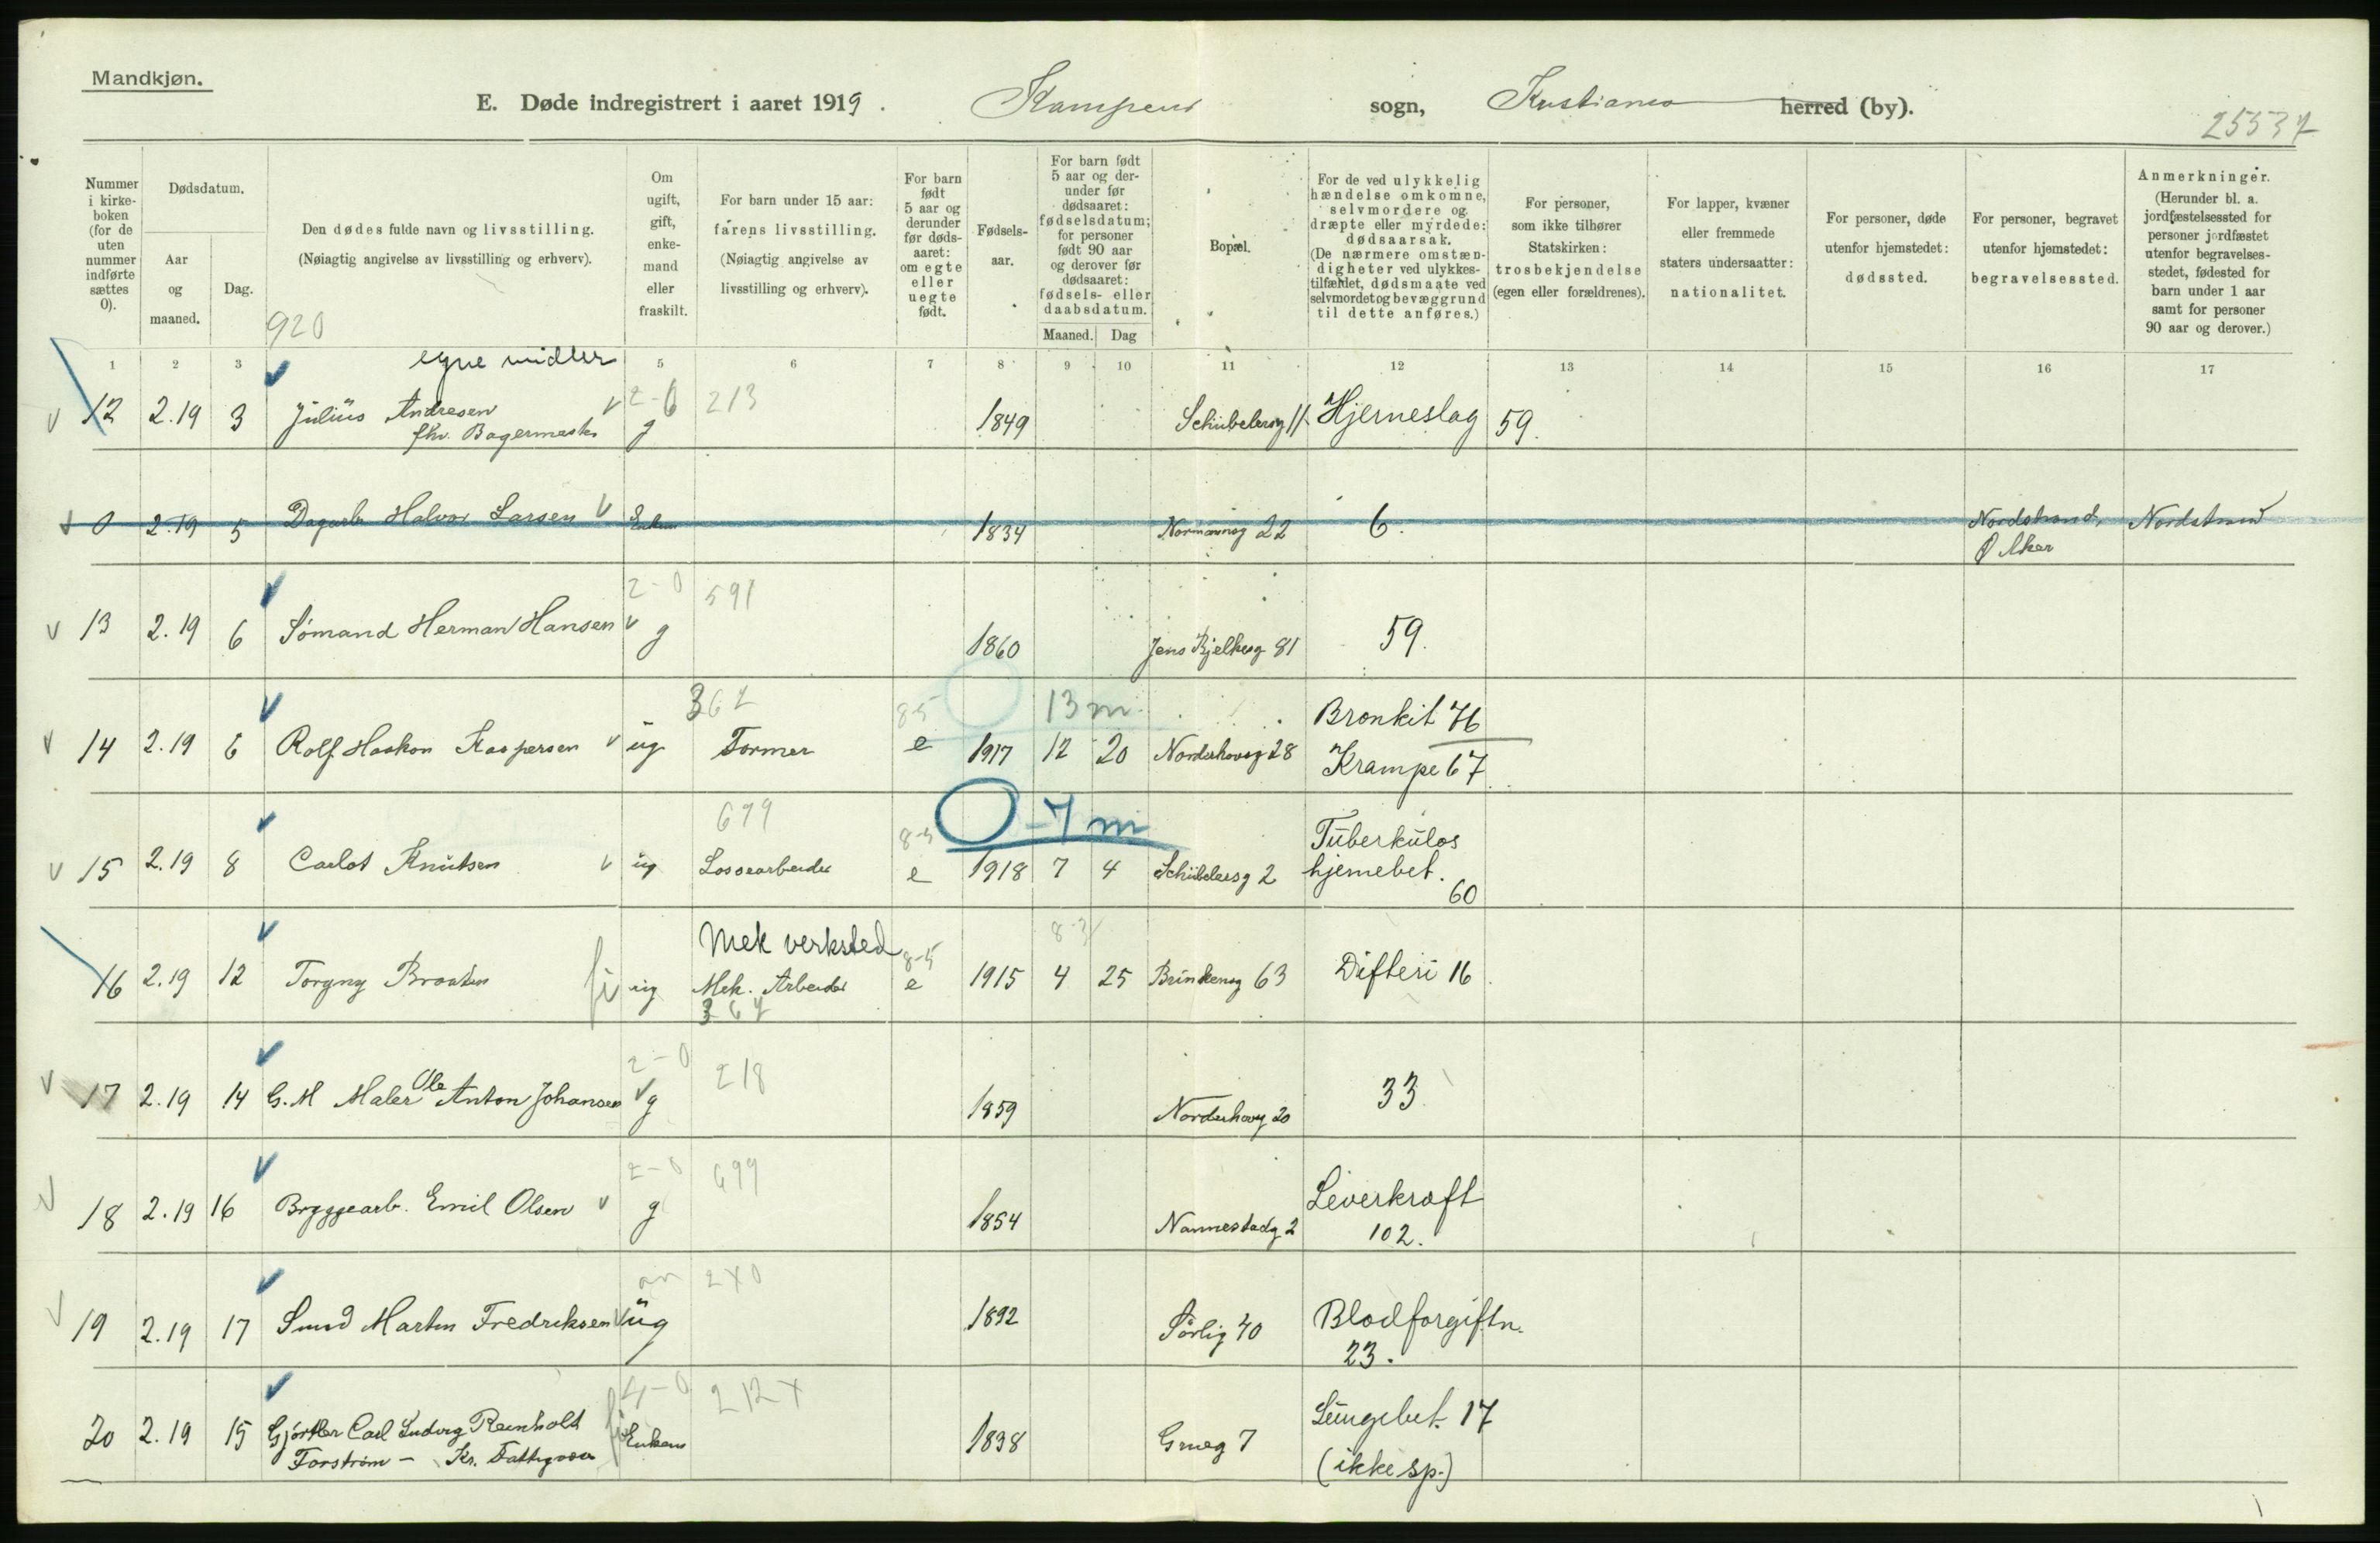 Mandkjøn.
E. Døde indregistrert i aaret 1919. Kampens sogn, Kristiania herred (by).
25537
Nummer i kirkeboken (for de uten nummer indførte sættes 0).
Dødsdatum.
Aar og maaned.
Dag.
Den dødes fulde navn og livsstilling.
(Nøiagtig angivelse av livsstilling og erhverv).
920
Om ugift, gift, enkemand eller fraskilt.
For barn under 15 aar:
farens livsstilling.
(Nøiagtig angivelse av livsstilling og erhverv).
For barn født 5 aar og derunder før dødsaaret: om egte eller uegte født.
Fødselsaar.
For barn født 5 aar og derunder før dødsaaret: fødselsdatum; for personer født 90 aar og derover før dødsaaret: fødsels- eller daabsdatum.
Maaned. Dag
Bopæl.
For de ved ulykkelig hændelse omkomne, selvmordere og dræpte eller myrdede: dødsaarsak.
(De nærmere omstændigheter ved ulykkestilfældet, dødsmaate ved selvmordet og bevæggrund til dette anføres.)
For personer, som ikke tilhører Statskirken: trosbekjendelse (egen eller forældrenes).
For lapper, kvæner eller fremmede staters undersaatter: nationalitet.
For personer, døde utenfor hjemstedet: dødssted.
For personer, begravet utenfor hjemstedet: begravelsessted.
Anmerkninger.
(Herunder bl. a. jordfæstelsessted for personer jordfæstet utenfor begravelsesstedet, fødested for barn under 1 aar samt for personer 90 aar og derover.)
1 2 3 5 6 7 8 9 10 11 12 13 14 15 16 17
egne midler
2-0 213
12 2.19 3 Julius Andresen g 1849 Schübelersg 11 Hjerneslag 59.
fhv. Bagermester
0 2.19 5 Dagarb Halvor Larsen Enkem 1834 Normannsg 22 6. Nordstrand, Nordstrand
Ø Aker
2-0 591
13 2.19 6 Sømand Herman Hansen g 1860 Jens Bjelkesg 81 59.
367 85 13 m. Bronkit 76
14 2.19 6 Rolf Haakon Kaspersen ug Former e 1917 12 20 Norderhovsg 28 Krampe 67
699 8-5 0-7 m Tuberkulos
15 2.19 8 Carlot Knutsen ug Lossearbeider e 1918 7 4 Schübelersg 2 hjernebet.
60
Mek verksted 8-5
16 2.19 12 Torgny Braaten ug Mek. Arbeider e 1915 4 25 Brinkensg 63 Difteri 16
367
2-0 218
17 2.19 14 G.M Maler Ole Anton Johansen g 1859 Norderhovg 20 33
2-0 699
18 2.19 16 Bryggearb. Emil Olsen g 1854 Nannestadg 2 Leverkræft
102.
19 2.19 17 Smed Martin Fredriksen ug 1892 Sørlig 40 Blodforgiftn.
23.
4-0 212 x
20 2.19 15 Gjørtler Carl Ludvig Reinholt Enkem 1838 Grueg 7 Lungebet. 17
Forstrøm - Kr. Fattigvæsen (ikke sp.)